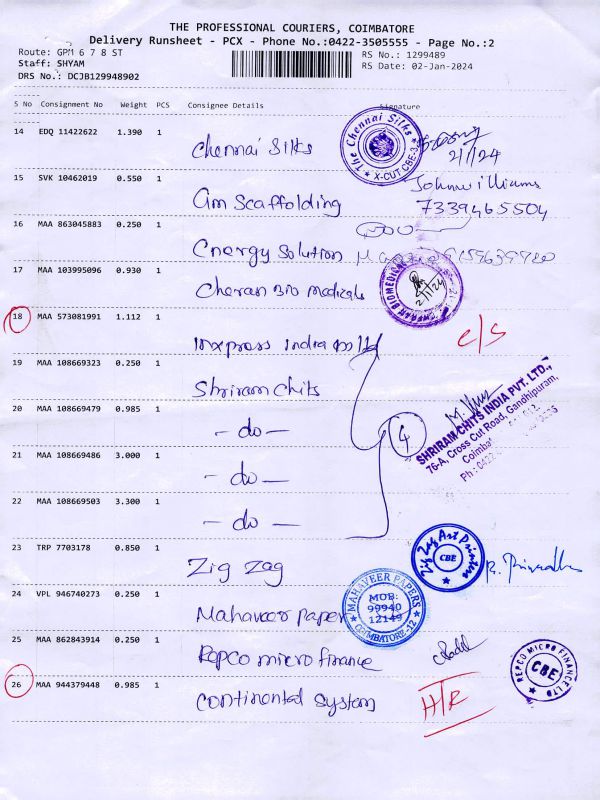 THE PROFESSIONAL COURIERS, COIMBATORE
Delivery Runsheet - PCX - Phone No.:0422-3505555 - Page No.:2
Route: GPM 6 7 8 ST
RS No.: 1299489
Staff: SHYAM
RS Date: 02-Jan-2024
DRS No.: DCJB129948902
S No Consignment No Weight PCS Consignee Details Signature
14 EDQ 11422622 1.390 1 Chennai Silks
The Chennai Silks X-CUT CBE-
2/1/24
15 SVK 10462019 0.550 1 Gm Scaffolding
Johnwilliams
7339465504
16 MAA 863045883 0.250 1 Energy Solution
17 MAA 103995096 0.930 1 Cheran Bio medicals
2/1/24
18 MAA 573081991 1.112 1 Inxpress India
C/S
19 MAA 108669323 0.250 1 Shriram Chits
20 MAA 108669479 0.985 1 - do -
4
SHRIRAM CHITS INDIA PVT. LTD.,
76-A, Cross Cut Road, Gandhipuram,
Ph : 0422
21 MAA 108669486 3.000 1 - do -
22 MAA 108669503 3.300 1 - do -
23 TRP 7703178 0.850 1 Zig Zag
Zig Zag Art Printers CBE
24 VPL 946740273 0.250 1 Mahaveer Paper
MAHAVEER PAPERS
MOB:
99940
12149
COIMBATORE-12
25 MAA 862843914 0.250 1 Repco micro finance
REPCO MICRO FINANCE LTD CBE
26 MAA 944379448 0.985 1 Continental System
H/R